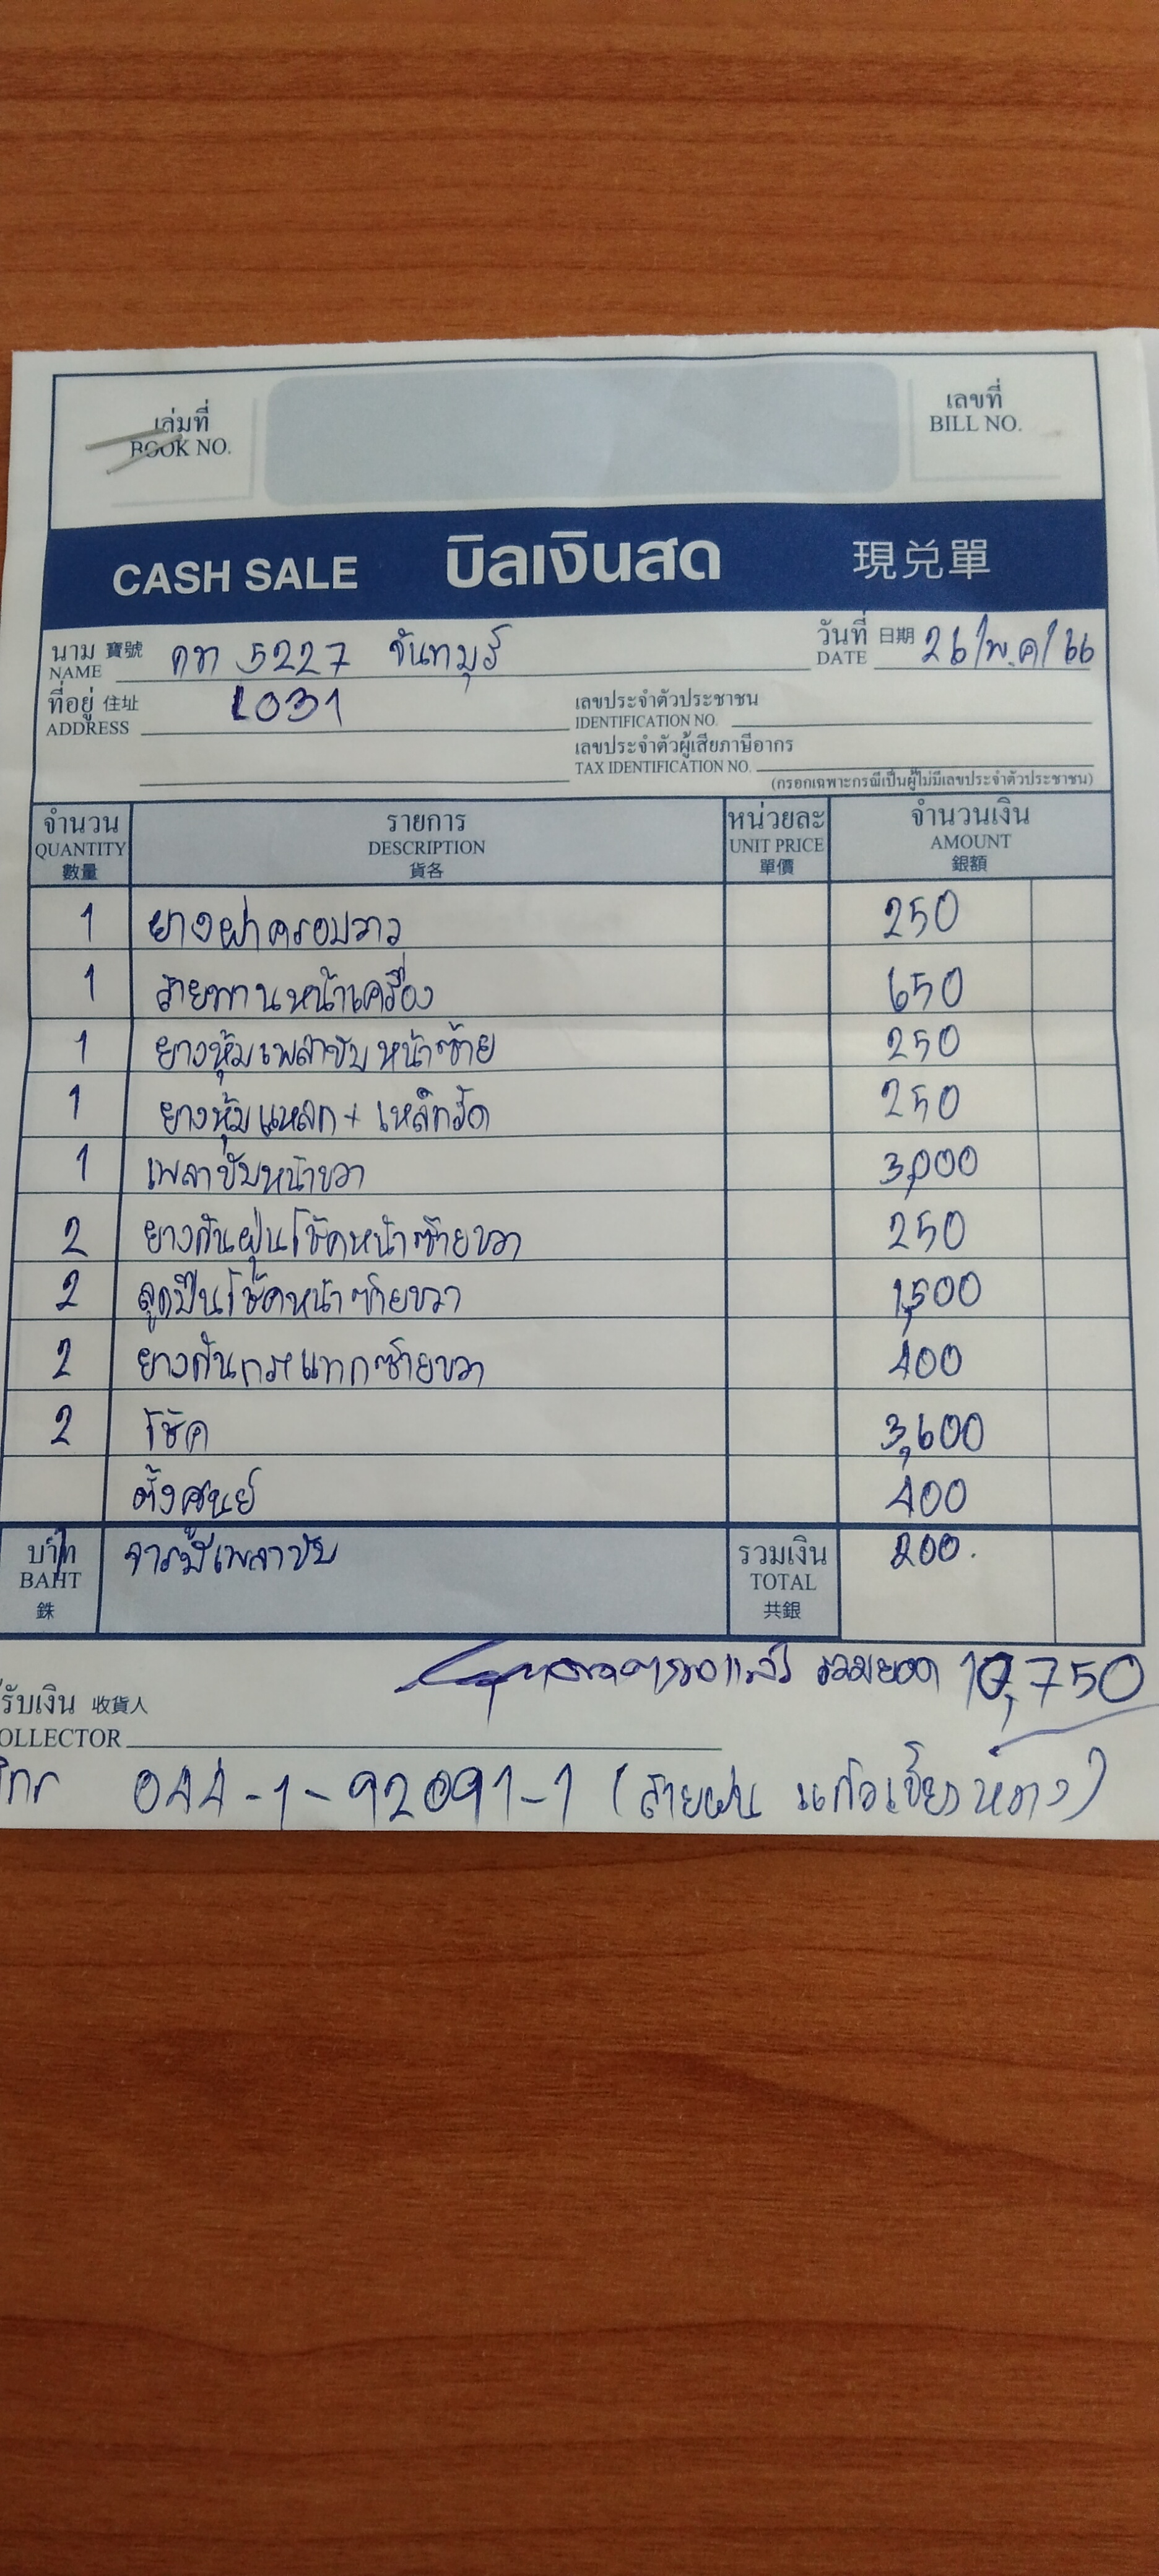 เล่มที่
BOOK NO.
เลขที่
BILL NO.
CASH SALE บิลเงินสด 現兌單
นาม 寶號 กท 5227 จันทบุรี
NAME
วันที่ 日期 26/พ.ค/66
DATE
ที่อยู่ 住址 1031
ADDRESS
เลขประจำตัวประชาชน
IDENTIFICATION NO.
เลขประจำตัวผู้เสียภาษีอากร
TAX IDENTIFICATION NO.
(กรอกเฉพาะกรณีเป็นผู้ไม่มีเลขประจำตัวประชาชน)
จำนวน รายการ หน่วยละ จำนวนเงิน
QUANTITY DESCRIPTION UNIT PRICE AMOUNT
數量 貨名 單價 銀額
1 ยางฝาครอบวาว 250
1 สายพานหน้าเครื่อง 650
1 ยางหุ้มเพลาขับหน้าซ้าย 250
1 ยางหุ้มแหลก + เหล็กรัด 250
1 เพลาขับหน้าขวา 3,000
2 ยางกันฝุ่นโช้คหน้าซ้ายขวา 250
2 ลูกปืนโช้คหน้าซ้ายขวา 1,500
2 ยางกันกระแทกซ้ายขวา 400
2 โช้ค 3,600
ตั้งศูนย์ 400
บาท จารบีเพลาขับ รวมเงิน 200.
BAHT TOTAL
銖 共銀
รวมยอด 10,750
รับเงิน 收貨人
OLLECTOR
044-1-92091-1 (สายฝน แก้วเขียวหวาง)